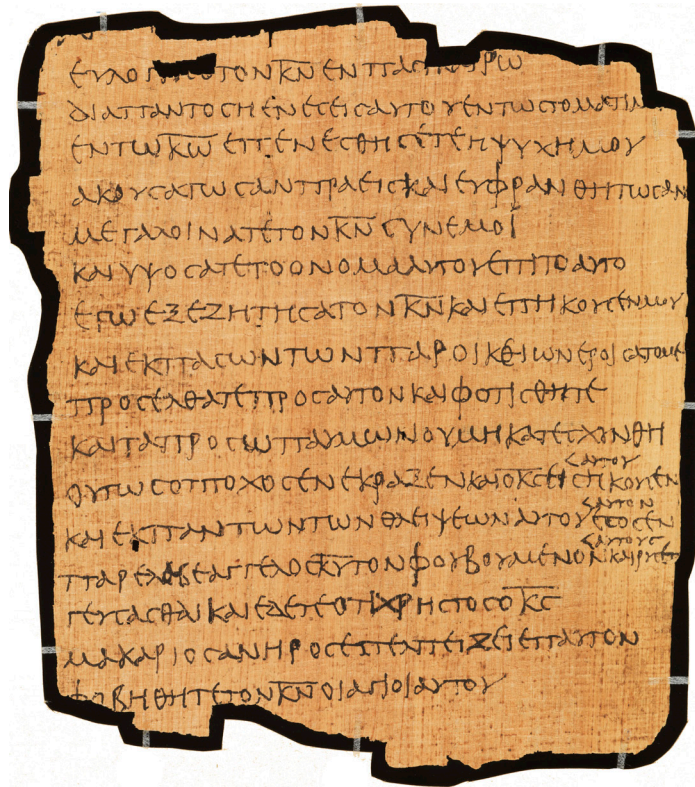 ΕΥΛΟΓ ΤΟΝΚ̅Ν̅ ΕΝ ΠΑ ΡΩ
ΔΙΑΠΑΝΤΟϹΗΕΝΕϹΕΙϹΑΥΤΟΥΕΝΤΩϹΤΟΜΑΤΙΜ
ΕΝΤΩΚ̅Ω̅ ΕΠΕΝΕϹΘΗϹΕΤΕΗΨΥΧΗΜΟΥ
ΑΚΟΥϹΑΤΩϹΑΝΠΡΑΕΙϹΚΑΙΕΥΦΡΑΝΘΗΤΩϹΑΝ
ΜΕΓΑΛΟΙΝΑΤΕΤΟΝΚ̅Ν̅ ϹΥΝΕΜΟΙ
ΚΑΙΥΨΟϹΑΤΕΤΟΟΝΟΜΑΑΥΤΟΥΕΠΙΤΟΑΥΤΟ
ΕΓΩΕΞΕΖΗΤΗϹΑΤΟΝΚ̅Ν̅ΚΑΙΕΠΗΚΟΥϹΕΝΜΟΥ
ΚΑΙΕΚΠΑϹΩΝΤΩΝΠΑΡΟΙΚΕΙΩΝΕΡΟΙϹΑΤΟΜΕ
ΠΡΟϹΕΛΘΑΤΕΠΡΟϹΑΥΤΟΝΚΑΙΦΟΤΙϹΘΗΤΕ
ΚΑΙΤΑΠΡΟϹΩΠΑΥΜΩΝΟΥΜΗΚΑΤΕϹΧΙΝΘΗ
ΑΥΤΟΥ
ΟΥΤΩϹΟΠΤΟΧΟϹΕΝΕΚΡΑΞΕΝΚΑΙΟΚ̅Ϲ̅ΕΙϹΗΚΟΥϹΕΝ
ΑΥΤΟΝ
ΚΑΙΕΚΠΑΝΤΩΝΤΩΝΘΛΕΙΨΕΩΝΑΥΤΟΥΕϹΟϹΕΝ
ΑΥΤΟΥϹ
ΑΓΓΕΛΟϹΚ̅Υ̅ΤΟΝΦΟΥΒΟΥΜΕΝΟΝΚΑΙΡΥϹΕ
ΓΕΥϹΑϹΘΑΙΚΑΙΕΔΕΤΕΟΤΙΧΡΗϹΤΟϹΟΚ̅Ϲ̅
ΜΑΚΑΡΙΟϹΑΝΗΡΟϹΕΛΠΕΝΤΕΙΖΕΙΕΠΑΥΤΟΝ
ΦΟΒΗΘΗΤΕΤΟΝΚ̅Ν̅ΟΙΑΓΙΟΙΑΥΤΟΥ